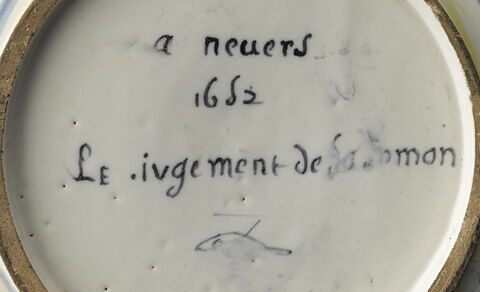 a neuers
1652
LE .iugement de Salomon